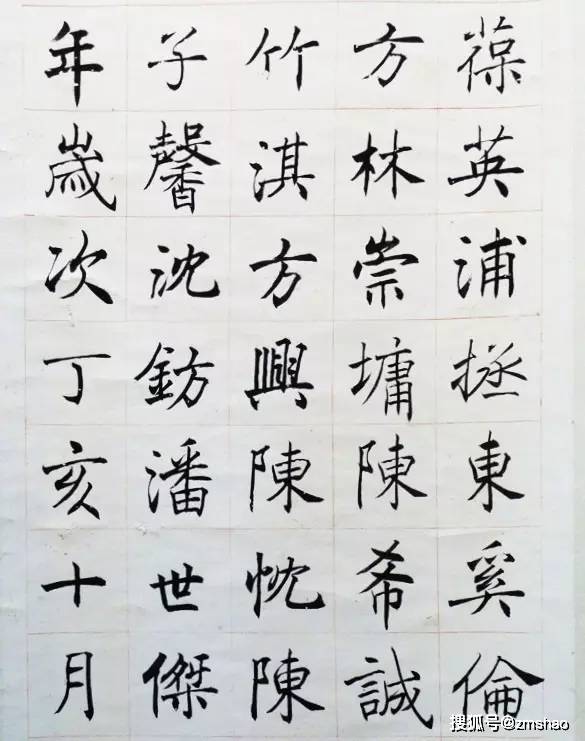 葆英浦拯東奚倫
方林崇墉陳希誠
竹淇方興陳忱陳
子馨沈鈁潘世傑
年歲次丁亥十月
搜狐号@zmshao